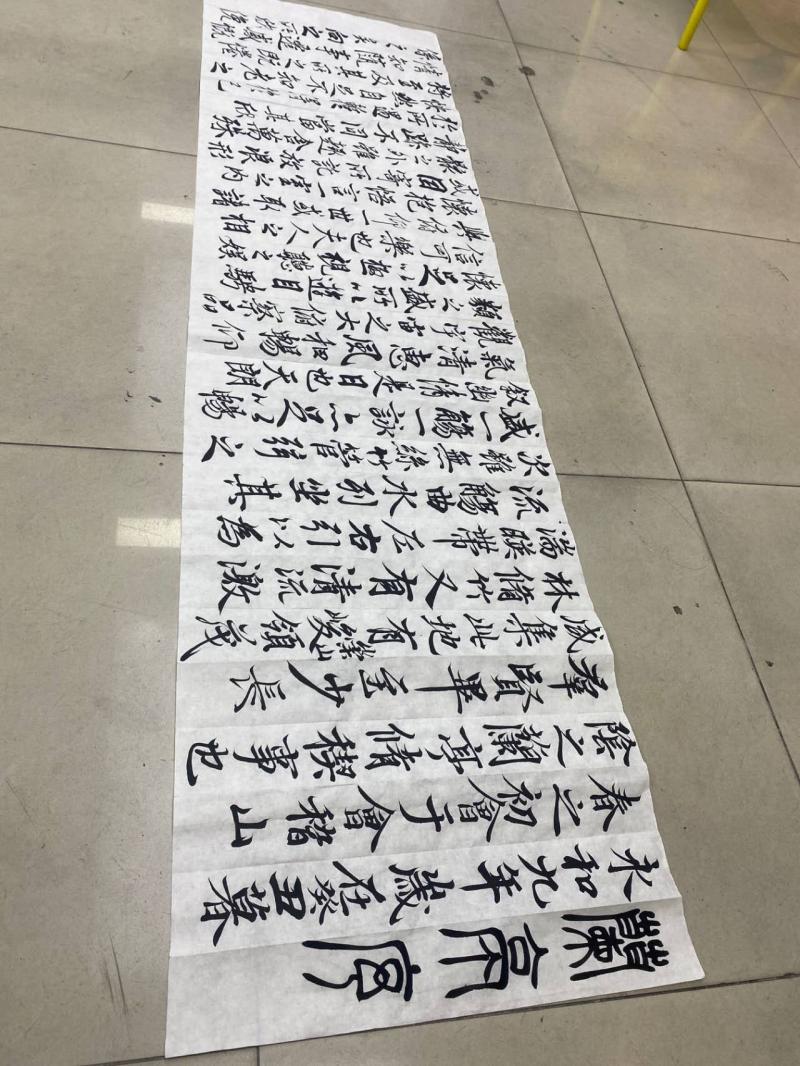 蘭亭序
永和九年歲在癸丑暮
春之初會于會稽山
陰之蘭亭脩稧事也
羣賢畢至少長
咸集此地有崇山峻領茂
林脩竹又有清流激
湍暎帶左右引以為
流觴曲水列坐其
次雖無絲竹管弦之
盛一觴一詠亦足以暢
叙幽情是日也天朗
氣清惠風和暢仰
觀宇宙之大俯察品
類之盛所以遊目騁
懷足以極視聽之娛
信可樂也夫人之相
與俯仰一世或取諸
懷抱悟言一室之內
或因寄所託放浪形
骸之外雖趣舍萬殊
靜躁不同當其欣
於所遇暫得於己
怏然自足不知老之
將至及其所之既惓
情隨事遷感慨
係之矣向之所欣俛